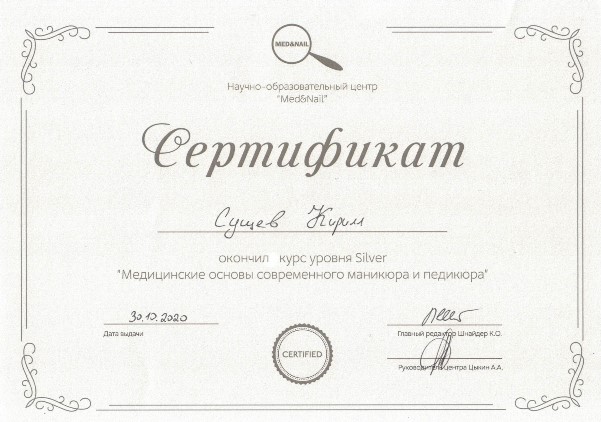 MED&NAIL
Научно-образовательный центр
"Med&Nail"
Сертификат
Сущев Карим
окончил курс уровня Silver
"Медицинские основы современного маникюра и педикюра"
30.10.2020
Дата выдачи
Главный редактор Шнайдер К.О.
CERTIFIED
Руководитель центра Цыкин А.А.